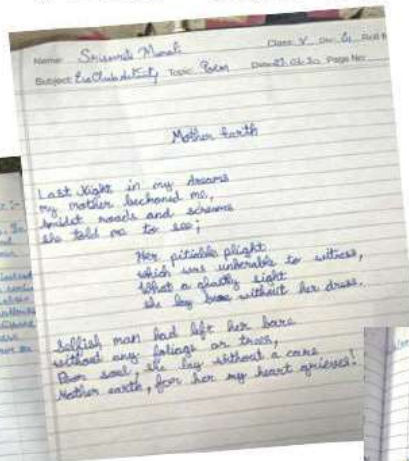 Name: Class: V Div: G Roll N
Subject: Eco Club activity Topic: Poem Date: Page No:
Mother Earth
Last Night in my dreams
my mother beckoned me,
Amidst roads and screams
she told me to see;
Her pitiable plight
which was unberable to witness,
What a ghastly sight
she lay bare without her dress.
Selfish man had left her bare
without any foliage or trees,
Poor soul, she lay without a care
Mother earth, for her my heart grieves!